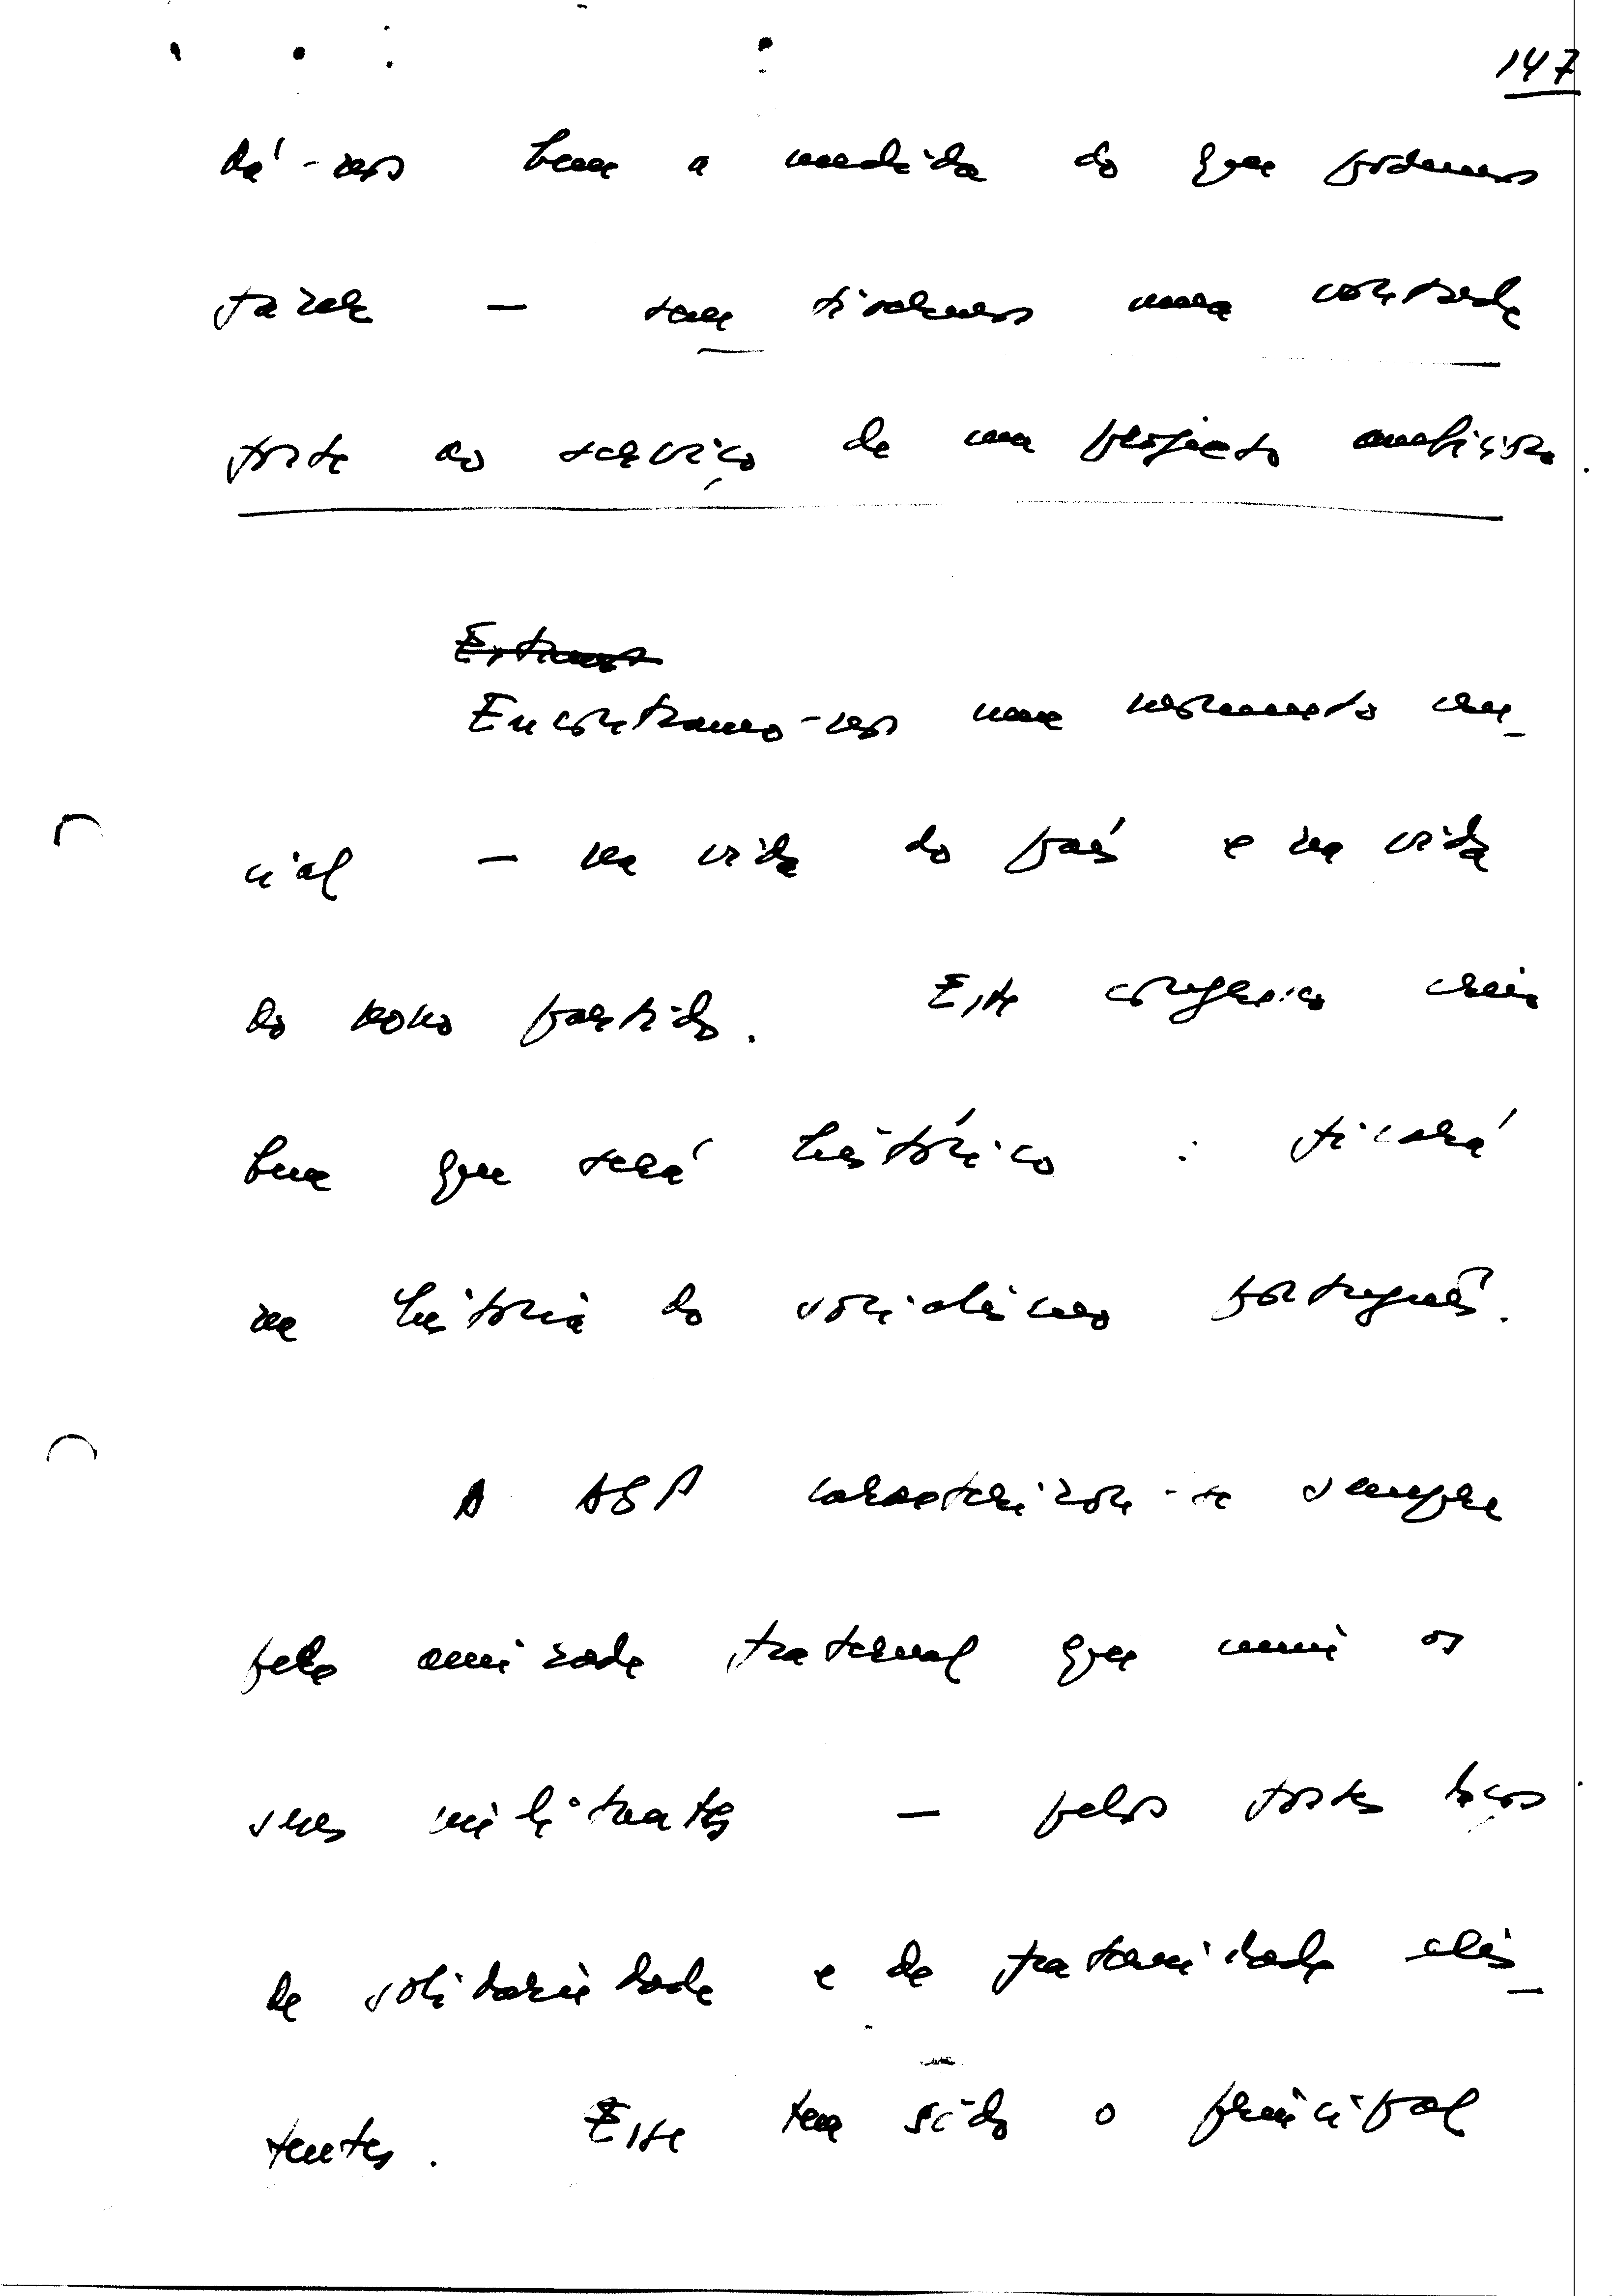 147
dá-nos bem a medida do que podemos
fazer — se tivermos uma vontade
forte ao serviço de um projecto ambicioso.
Estamos
Encontramo-nos num momento cru-
cial — na vida do país e na vida
do nosso partido. Este congresso creio
bem que será histórico: ficará
na história do socialismo português.
A ASP caracterizou-se sempre
pela amizade fraternal que uniu os
seus militantes — pelos fortes laços
de solidariedade e de fraternidade exis-
tentes. Este tem sido o principal